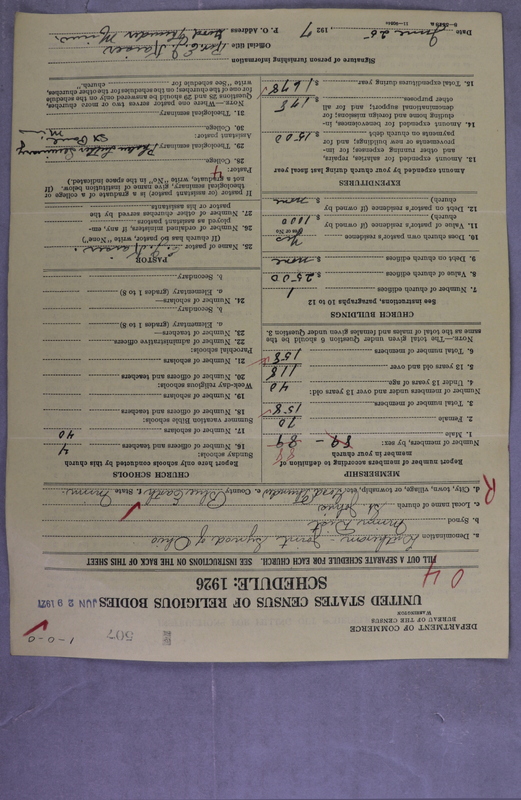 1-0-0
507
DEPARTMENT OF COMMERCE
BUREAU OF THE CENSUS
WASHINGTON
UNITED STATES CENSUS OF RELIGIOUS BODIES
JUN 29 1927
SCHEDULE: 1926
04
FILL OUT A SEPARATE SCHEDULE FOR EACH CHURCH. SEE INSTRUCTIONS ON THE BACK OF THIS SHEET
a. Denomination Lutheran - Joint Synod of Ohio
b. Synod Minn. Dist
c. Local name of church St Johns
R
d. City, town, village, or township, etc. Good Thunder County Blue Earth State Minn.
MEMBERSHIP
Report number of members according to definition of
member in your church
Number of members, by sex:
1. Male 88
2. Female 70
3. Total number of members. 158
Number of members under and over 13 years old:
4. Under 13 years of age. 40
5. 13 years old and over 118
6. Total number of members 158
NOTE.—The total given under Question 6 should be the
same as the total of males and females given under Question 3.
CHURCH BUILDINGS
See instructions, paragraphs 10 to 12
7. Number of church edifices 1
8. Value of church edifices $ 2500
9. Debt on church edifices $ none
10. Does church own pastor's residence yes
(Yes or No)
11. Value of pastor's residence (if owned by
church) $ 1000
12. Debt on pastor's residence (if owned by
church) $ none
EXPENDITURES
Amount expended by your church during last fiscal year
13. Amount expended for salaries, repairs,
and other running expenses; for im-
provements or new buildings; and for
payments on church debt $ 1500
14. Amount expended for benevolences, in-
cluding home and foreign missions; for
denominational support; and for all
other purposes $ 178
15. Total expenditures during year $ 1678
CHURCH SCHOOLS
Report here only schools conducted by this church
Sunday schools:
16. Number of officers and teachers 4
17. Number of scholars 40
Summer vacation Bible schools:
18. Number of officers and teachers
19. Number of scholars
Week-day religious schools:
20. Number of officers and teachers
21. Number of scholars
Parochial schools:
22. Number of administrative officers
23. Number of teachers—
a. Elementary (grades 1 to 8)
b. Secondary
24. Number of scholars—
a. Elementary (grades 1 to 8)
b. Secondary
PASTOR
25. Name of pastor E. J. Kaiser
(If church has no pastor, write "None")
26. Number of ordained ministers, if any, em-
ployed as assistant pastors
27. Number of other churches served by the
pastor or his assistants
If pastor (or assistant pastor) is a graduate of a college or
theological seminary, give name of institution below. (If
not a graduate, write "No" in the space indicated.)
Pastor:
28. College
29. Theological seminary Luther Seminary
St Paul Minn
Assistant pastor:
30. College
31. Theological seminary
NOTE.—Where one pastor serves two or more churches,
Questions 28 and 29 should be answered only on the schedule
for one of the churches; on the schedules for the other churches,
write "See schedule for church."
Signature of person furnishing information
Rev. E. J. Kaiser
Official title
P. O. Address Good Thunder Minn.
Date June 25 1927